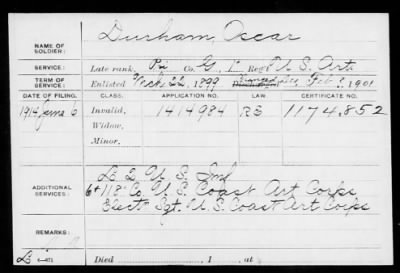 Durham, Oscar
NAME OF SOLDIER:
SERVICE: Late rank, Pvt Co. G, 1" Reg't U. S. Art.
TERM OF SERVICE: Enlisted 22, 1899 Feb 1901
DATE OF FILING. CLASS. APPLICATION NO. LAW. CERTIFICATE NO.
1914 June 6 Invalid, 1414984 RE 1174,852
Widow,
Minor,
ADDITIONAL SERVICES: U S Inf
6+118" Co U. S. Coast Art Corps
Elect" Sgt. U. S. Coast Art Corps
REMARKS:
Died , 1 , at